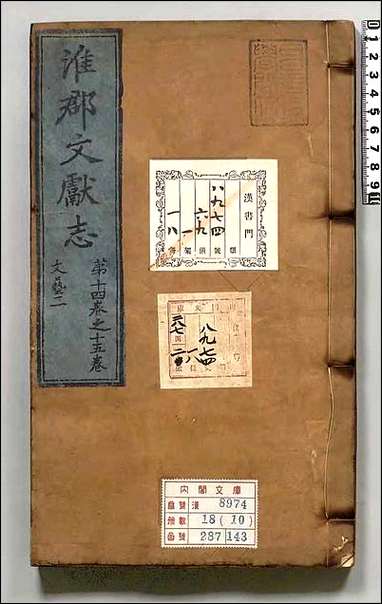 淮郡文獻志
第十四卷之十五卷
文藝二
漢書門
八九七四
六九
一
一八
八九七四
一八
二八七
內閣文庫
番號 漢 8974
冊數 18(10)
函號 287 143
0 1 2 3 4 5 6 7 8 9 10